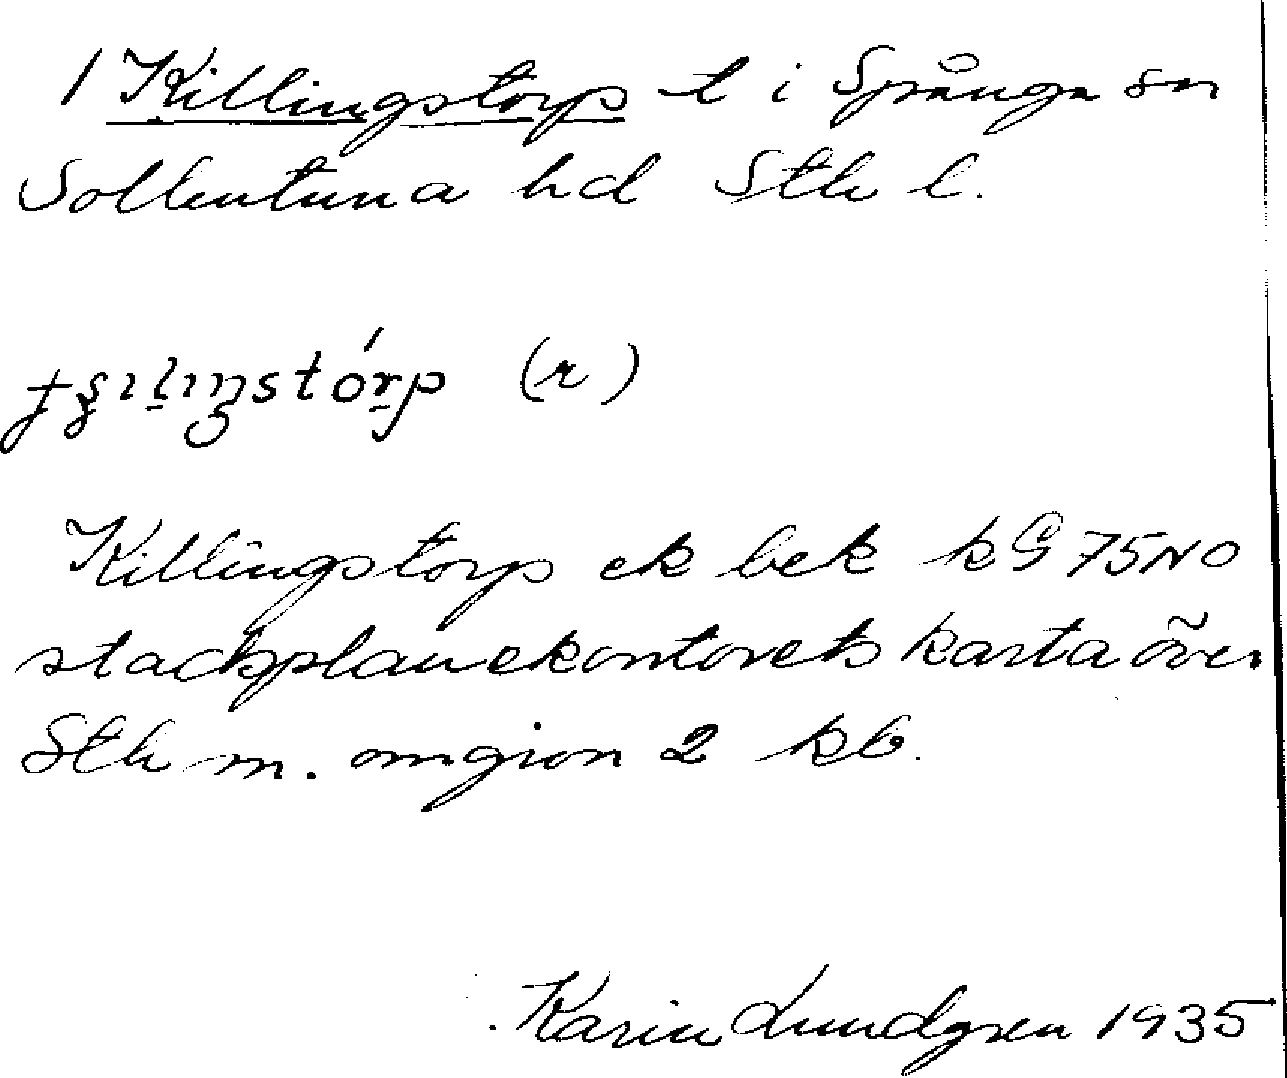 1 Killingstorp t i Spånga sn
Sollentuna hd Sth l.
(r)
Killingstorp ek bek kG 75 NO
stadsplanekontorets karta över
Sthm. omgivn 2 kb.
Karin Lundgren 1935